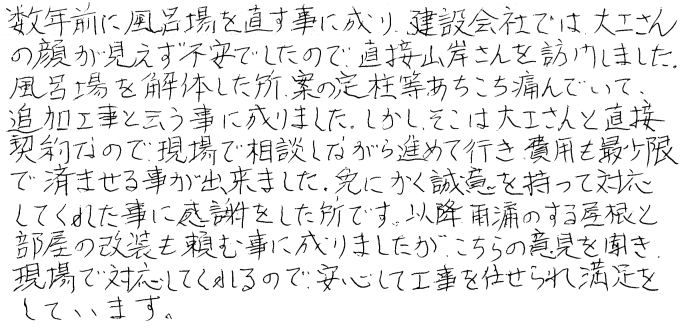 数年前に風呂場を直す事に成り、建設会社では大工さん
の顔が見えず不安でしたので、直接山岸さんを訪問しました。
風呂場を解体した所、案の定柱等あちこち痛んでいて、
追加工事と云う事に成りました。しかし、そこは大工さんと直接
契約なので、現場で相談しながら進めて行き、費用も最少限
で済ませる事が出来ました。兎にかく誠意を持って対応
してくれた事に感謝をした所です。以降雨漏のする屋根と
部屋の改装も頼む事に成りましたが、こちらの意見を聞き、
現場で対応してくれるので、安心して工事を任せられ満足を
しています。